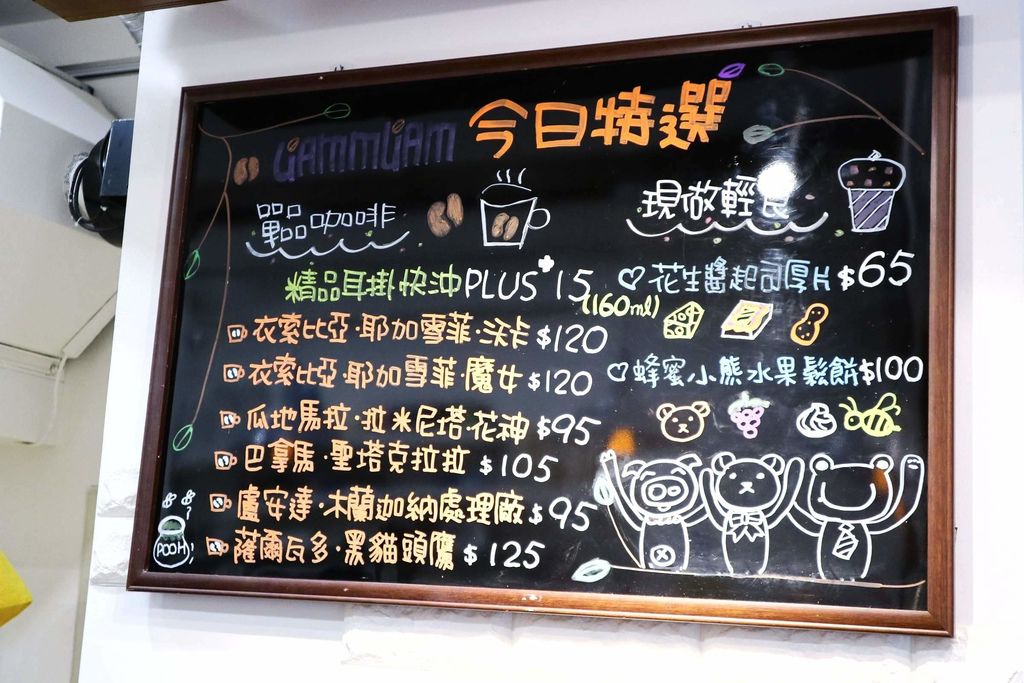 GAMMGAM 今日特選
單品咖啡
精品耳掛快沖PLUS+15
(160ml)
衣索比亞·耶加雪菲·沃卡 $120
衣索比亞·耶加雪菲·魔女 $120
瓜地馬拉·拉米尼塔花神 $95
巴拿馬·聖塔克拉拉 $105
盧安達·木蘭加納處理廠 $95
薩爾瓦多·黑貓頭鷹 $125
現做輕食
花生醬起司厚片 $65
蜂蜜小熊水果鬆餅 $100
POOH